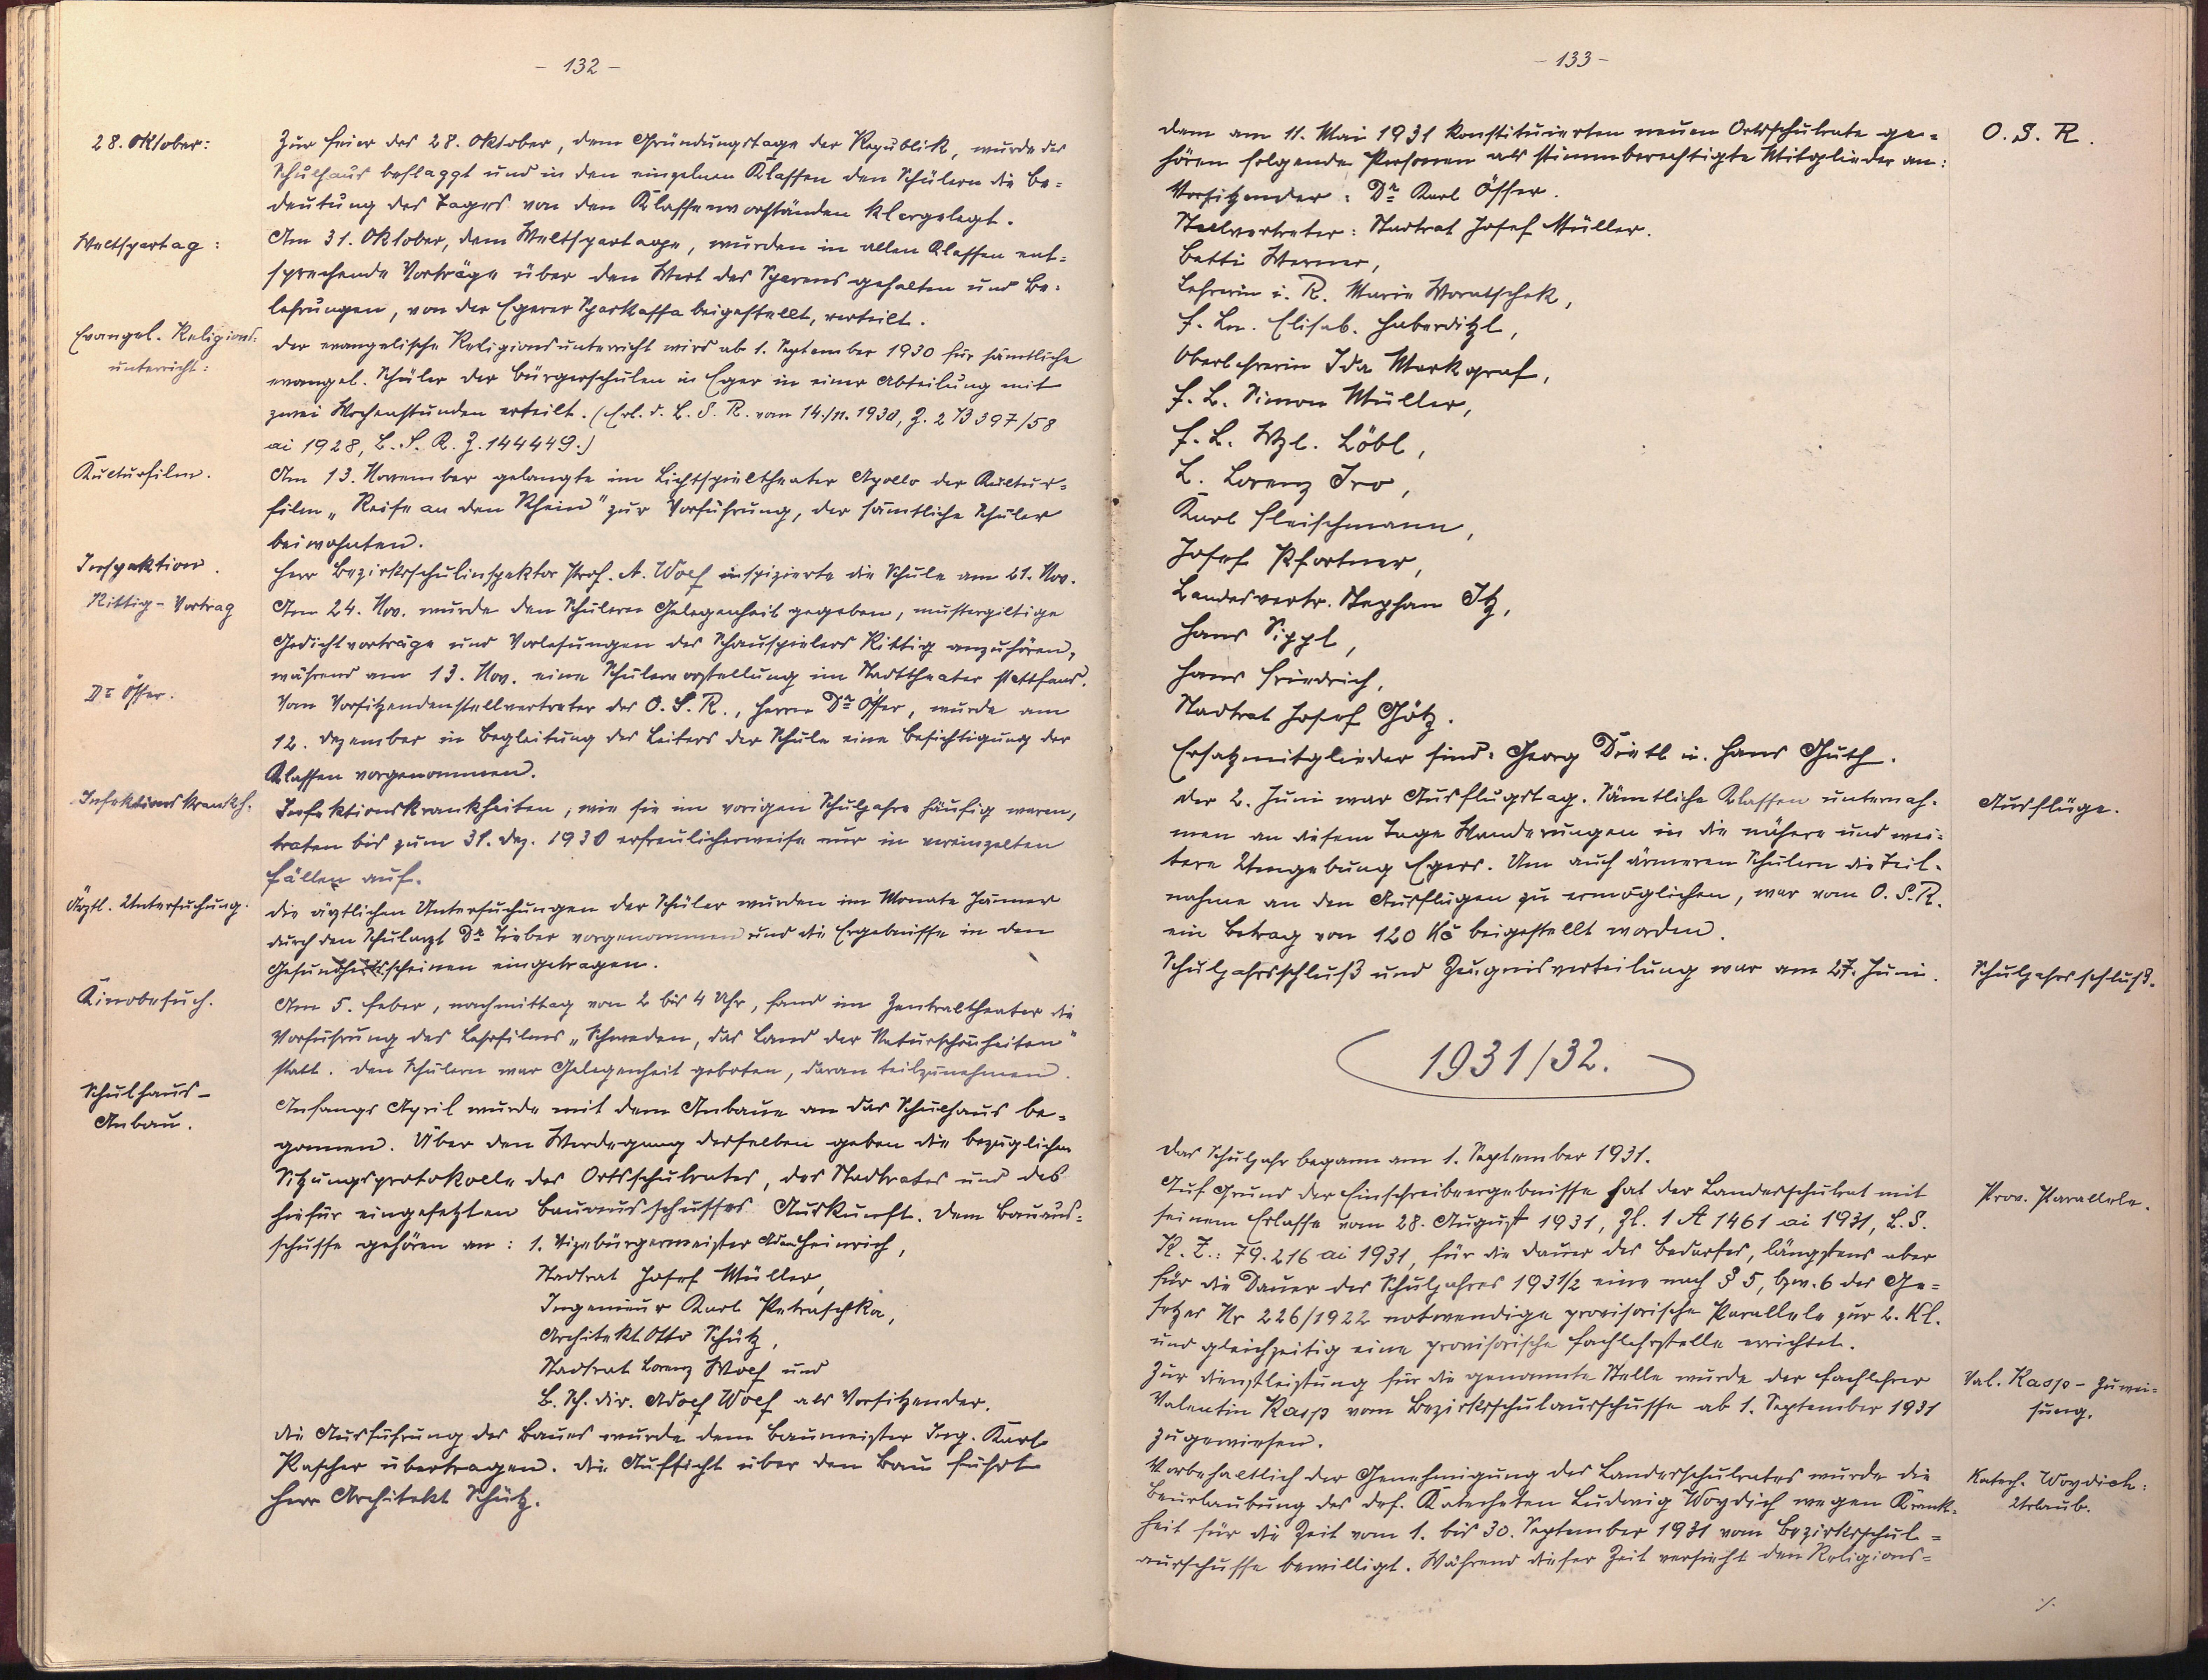 - 132 -
28. Oktober:
Zur Feier des 28. Oktober, dem Gründungstage der Republik, wurde das
Schulhaus beflaggt und in den einzelnen Klassen den Schülern die Be=
deutung des Tages von den Klassenvorständen klargelegt.
Weltspartag:
Am 31. Oktober, dem Weltspartage, wurden in allen Klassen ent=
sprechende Vorträge über den Wert des Sparens gehalten und Be=
lehrungen, von der Egerer Sparkassa beigestellt, verteilt.
Evangel. Religions=
unterricht:
Der evangelische Religionsunterricht wird ab 1. September 1930 für sämtliche
evangel. Schüler der Bürgerschulen in Eger in einer Abteilung mit
zwei Wochenstunden erteilt. (Erl. d. L. S. R. vom 14./11. 1930, Z. 2 B 397/58
ai 1928, L. S. R. Z. 144449.)
Kulturfilm.
Am 13. November gelangte im Lichtspieltheater Apollo der Kultur=
film „Reise an den Rhein" zur Vorführung, der sämtliche Schüler
beiwohnten.
Inspektion.
Herr Bezirksschulinspektor Prof. A. Wolf inspizierte die Schule am 21. Nov.
Rittig - Vortrag
Am 24. Nov. wurde den Schülern Gelegenheit gegeben, mustergiltige
Gedichtvorträge und Vorlesungen des Schauspielers Rittig anzuhören,
während am 13. Nov. eine Schülervorstellung im Stadttheater stattfand.
Dr Össer.
Vom Vorsitzendenstellvertreter des O. S. R., Herrn Dr Össer, wurde am
12. Dezember in Begleitung des Leiters der Schule eine Besichtigung der
Klassen vorgenommen.
Infektionskrankh.
Infektionskrankheiten, wie sie im vorigen Schuljahre häufig waren,
traten bis zum 31. Dez. 1930 erfreulicherweise nur in vereinzelten
Fällen auf.
Ärztl. Untersuchung.
Die ärztlichen Untersuchungen der Schüler wurden im Monate Jänner
durch den Schularzt Dr Tieber vorgenommen und die Ergebnisse in den
Gesundheitsscheinen eingetragen.
Kinobesuch.
Am 5. Feber, nachmittag von 2 bis 4 Uhr, fand im Zentraltheater die
Vorführung des Lehrfilms „Schweden, das Land der Naturschönheiten"
statt. Den Schülern war Gelegenheit geboten, daran teilzunehmen.
Schulhaus -
Anbau.
Anfangs April wurde mit dem Anbaue an das Schulhaus be=
gonnen. Über den Werdegang desselben geben die bezüglichen
Sitzungsprotokolle des Ortsschulrates, des Stadtrates und des
hiefür eingesetzten Bauausschusses Auskunft. Dem Bauaus=
schusse gehören an: 1. Vizebürgermeister Adam Heinrich,
Stadtrat Josef Müller,
Ingenieur Karl Petraschka,
Architekt Otto Schütz,
Stadtrat Lorenz Wolf und
B. Sch. Dir. Adolf Wolf als Vorsitzender.
Die Ausführung des Baues wurde dem Baumeister Ing. Karl
Pascher übertragen. Die Aufsicht über den Bau führt
Herr Architekt Schütz.
- 133 -
O. S. R.
Dem am 11. Mai 1931 konstituierten neuen Ortsschulrate ge=
hören folgende Personen als stimmberechtigte Mitglieder an:
Vorsitzender: Dr Karl Össer.
Stellvertreter: Stadtrat Josef Müller.
Betti Werner,
Lehrerin i. R. Marie Woratschek,
F. Ln. Elisab. Haberditzl,
Oberlehrerin Ida Markgraf,
F. L. Simon Müller,
F. L. Wzl. Löbl,
L. Lorenz Iro,
Karl Fleischmann,
Josef Pfortner,
Landesvertr. Stephan Itz,
Hans Sippl,
Hans Friedrich,
Stadtrat Josef Götz.
Ersatzmitglieder sind: Georg Dietl u. Hans Guth.
Ausflüge.
Der 2. Juni war Ausflugstag. Sämtliche Klassen unternah=
men an diesem Tage Wanderungen in die nähere und wei=
tere Umgebung Egers. Um auch ärmeren Schülern die Teil=
nahme an den Ausflügen zu ermöglichen, war vom O. S. R.
ein Betrag von 120 Kč beigestellt worden.
Schuljahrsschluß.
Schuljahrsschluß und Zeugnisverteilung war am 27. Juni.
1931/32.
Das Schuljahr begann am 1. September 1931.
Prov. Parallele.
Auf Grund der Einschreibeergebnisse hat der Landesschulrat mit
seinem Erlasse vom 28. August 1931, Zl. 1 A 1461 ai 1931, L. S.
R. Z.: 79.216 ai 1931, für die Dauer des Bedarfes, längstens aber
für die Dauer des Schuljahres 1931/2 eine nach § 5, bzw. 6 des Ge=
setzes Nr 226/1922 notwendige provisorische Parallele zur 2. Kl.
und gleichzeitig eine provisorische Fachlehrstelle errichtet.
Val. Rasp - Zuwei=
sung.
Zur Dienstleistung für die genannte Stelle wurde der Fachlehrer
Valentin Rasp vom Bezirksschulausschusse ab 1. September 1931
zugewiesen.
Katech. Woydich:
Urlaub.
Vorbehaltlich der Genehmigung des Landesschulrates wurde die
Beurlaubung des def. Katecheten Ludwig Woydich wegen Krank=
heit für die Zeit vom 1. bis 30. September 1931 vom Bezirksschul=
ausschusse bewilligt. Während dieser Zeit versieht den Religions=
./.